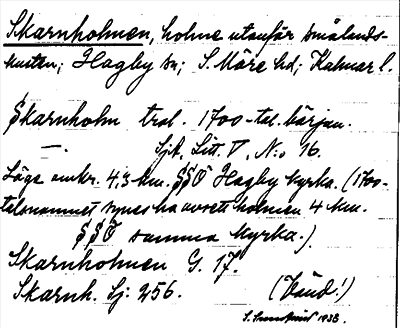 Skarnholmen, holme utanför smålands-
kusten; Hagby sn; S. Möre hd; Kalmar l.
Skarnholm trol. 1700-tal. början.
—. Sjk, Litt. V, N:o 16.
Läge omkr. 4,3 km. SSÖ Hagby kyrka. (1700-
talsnamnet synes ha avsett holmen 4 km.
SSÖ samma kyrka.)
Skarnholmen G. 17.
Skarnh. Sj: 256. (Vänd!)
1938.